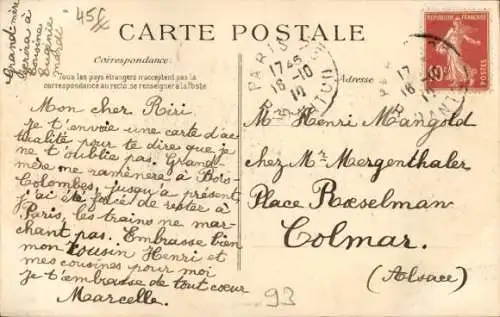 Grand'mère
écrira à
cousine
Eugénie
45 f
CARTE POSTALE
Correspondance
Tous les pays étrangers n'acceptent pas la
correspondance au recto, se renseigner à la Poste
Adresse
PARIS
17 45
16 -10
10
REPUBLIQUE FRANÇAISE
10c
POSTES
Mon cher Riri.
Je t'envoie une carte d'ac
tualité pour te dire que je
ne t'oublie pas. Grand'
mère me ramènera à Bois-
Colombes, jusqu'à présent
j'ai été forcée de rester à
Paris, les trains ne mar-
chant pas. Embrasse bien
mon cousin Henri et
mes cousines pour moi
Je t'embrasse de tout coeur
Marcelle.
Mr Henri Mangold
chez Mr Mergenthaler
Place Rœselman
Colmar.
(Alsace)
93